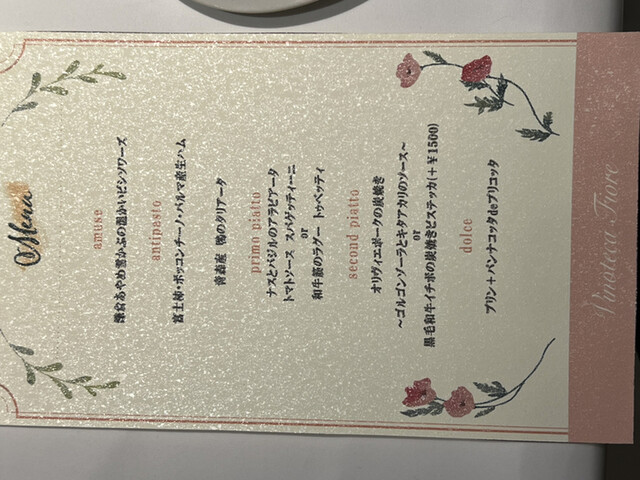 Menu
amuse
鎌倉あやめ雪かぶの温かいビシソワーズ
antipasto
富士柿・ボッコンチーノ・パルマ産生ハム
青森産 鴨のタリアータ
primo piatto
ナスとバジルのアラビアータ
トマトソース スパゲッティーニ
or
和牛筋のラグー トゥベッティ
second piatto
オリヴィエポークの炭焼き
～ゴルゴンゾーラとキタアカリのソース～
or
黒毛和牛イチボの炭焼きビステッカ(+￥1500)
dolce
プリン+パンナコッタdeプリコッタ
Pinoteca Fiore